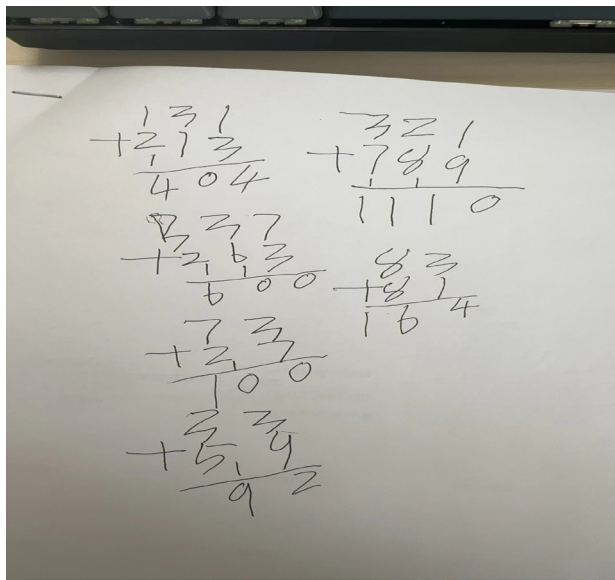 131
+273
404
337
+263
600
73
+27
100
33
+59
92
321
+789
1110
83
+81
164